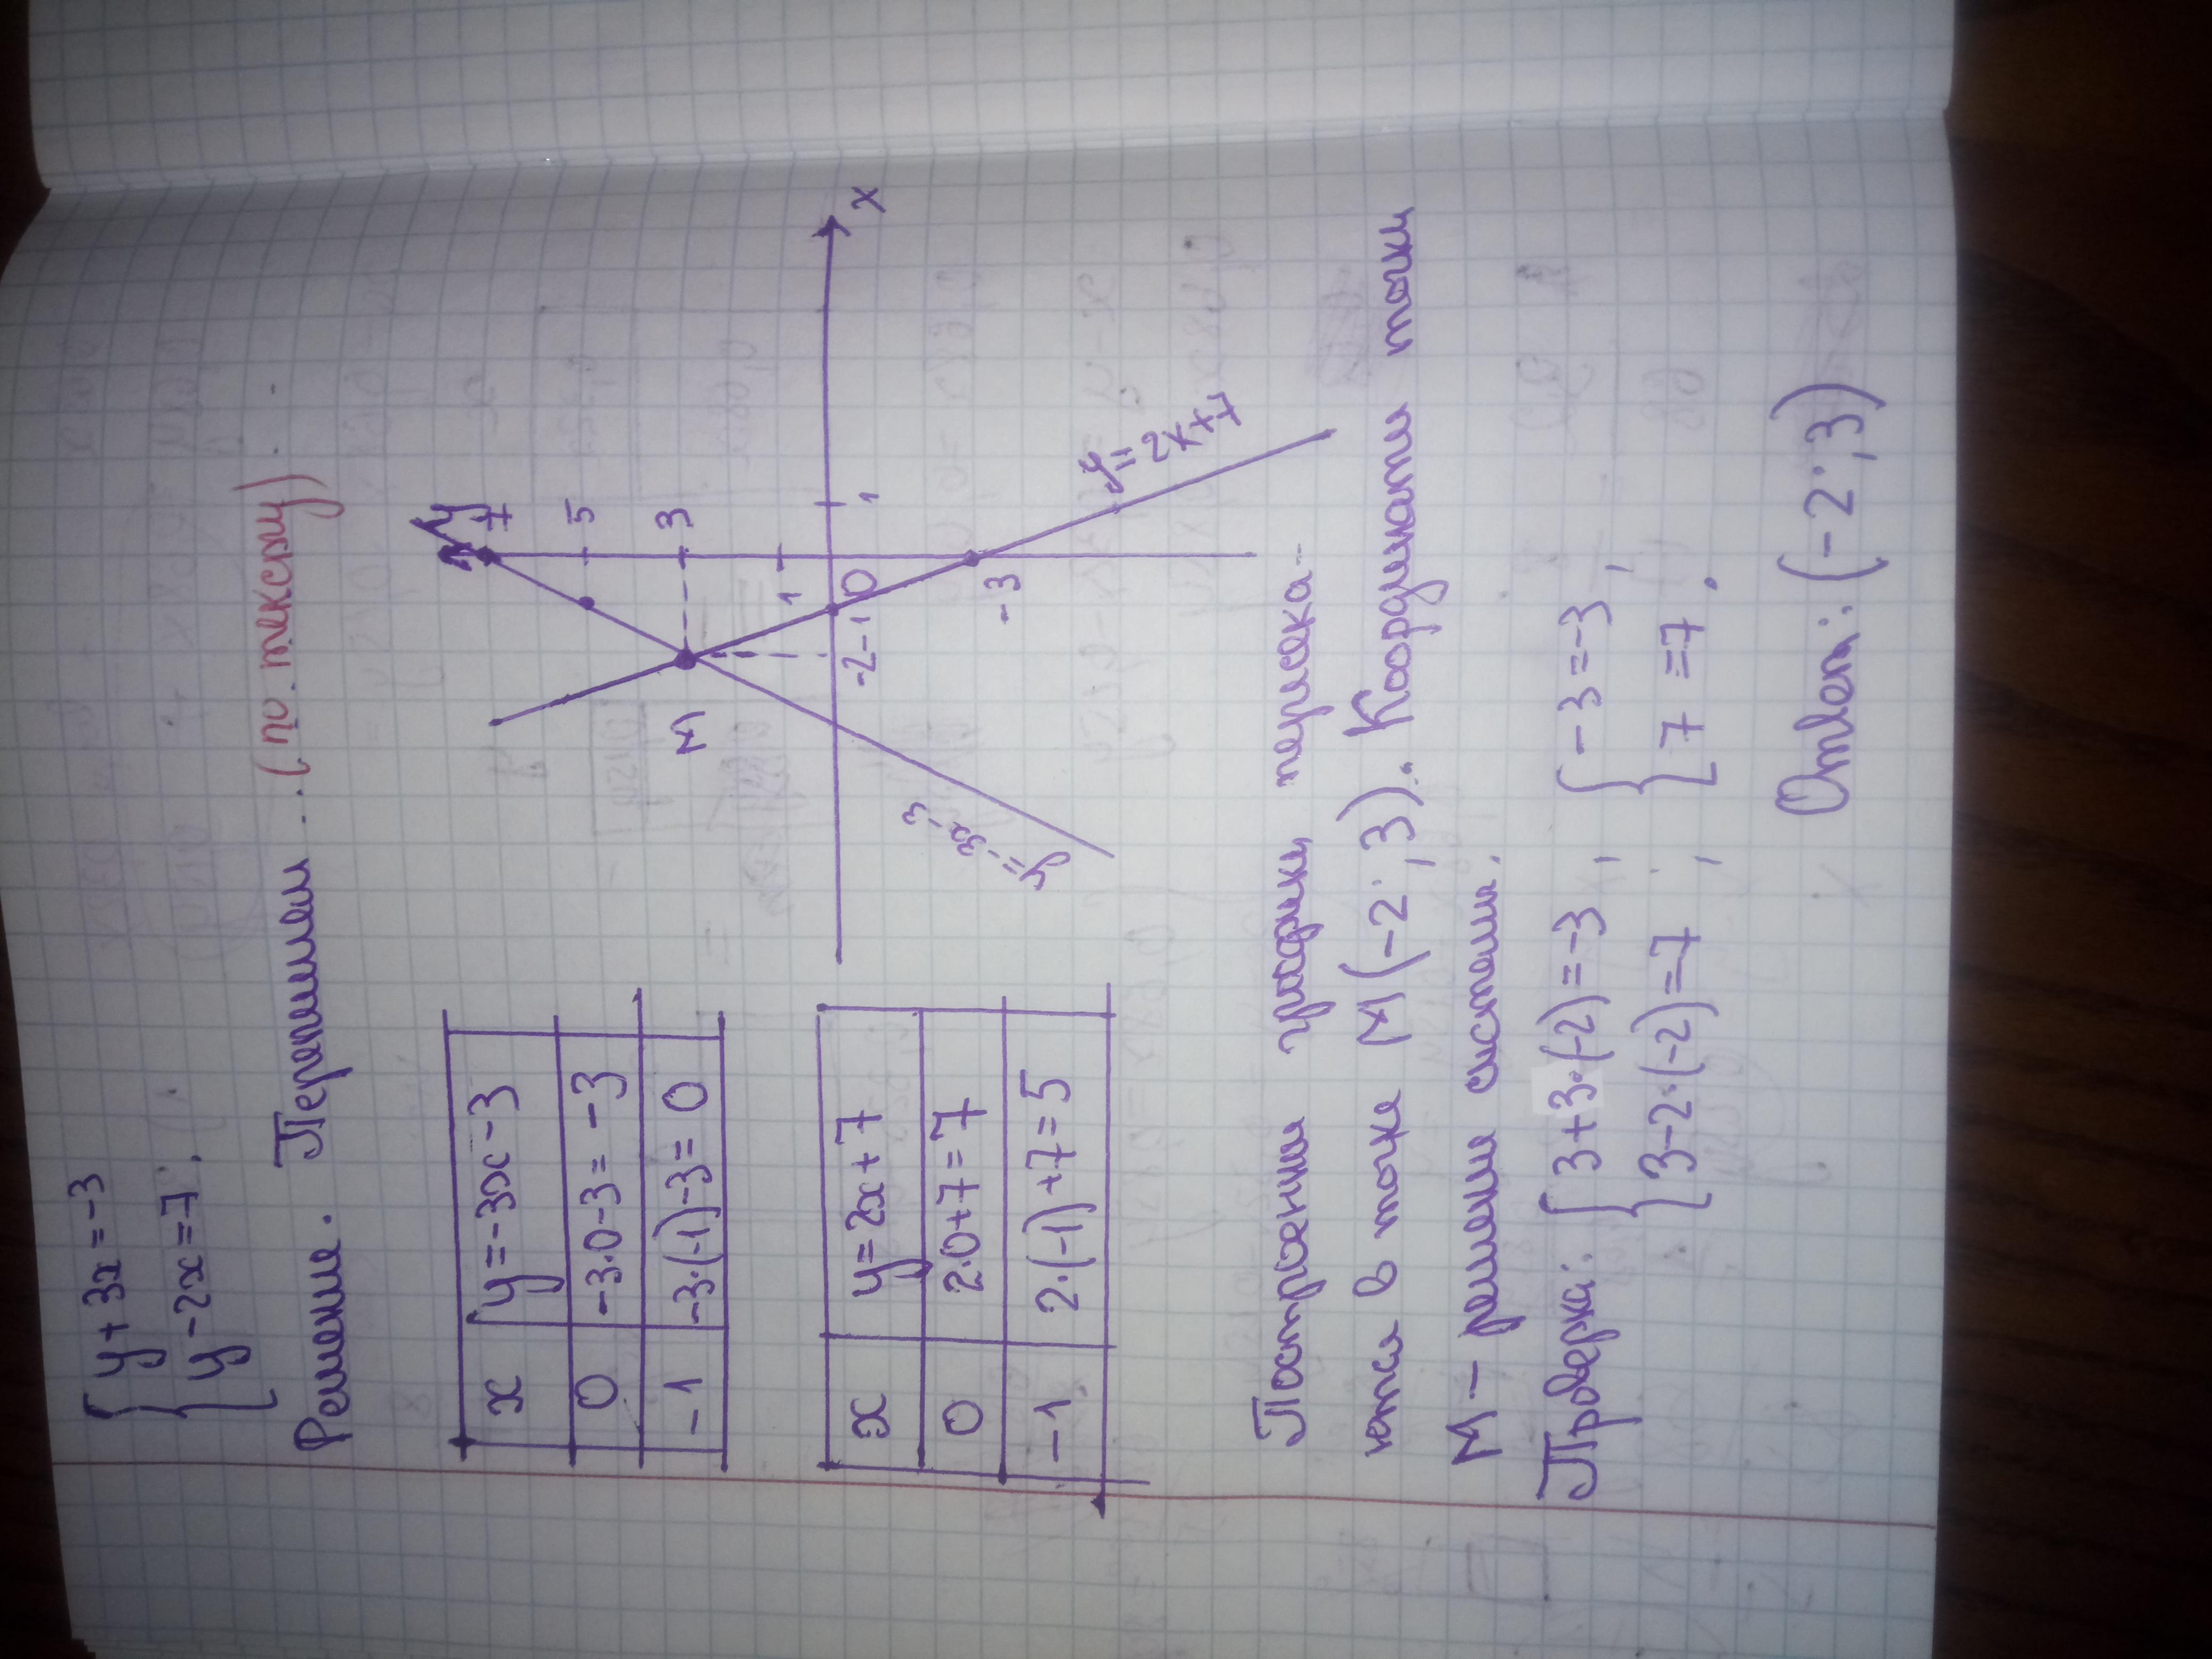 { y + 3x = -3
{ y - 2x = 7;
Решение. Перепишем .. (по тексту)
x | y = -3x - 3
0 | -3·0-3 = -3
-1 | -3·(-1)-3 = 0
x | y = 2x + 7
0 | 2·0+7=7
-1 | 2·(-1)+7 = 5
y
7
5
3
M
1
-2 -1 0 1 x
-3
y=-3x-3
y=2x+7
Построении графики пересека-
ются в точке M(-2; 3). Координаты точки
M - решение системы.
Проверка: { 3+3·(-2)=-3; { -3=-3,
{ 3-2·(-2)=7; { 7=7.
Ответ: (-2; 3)